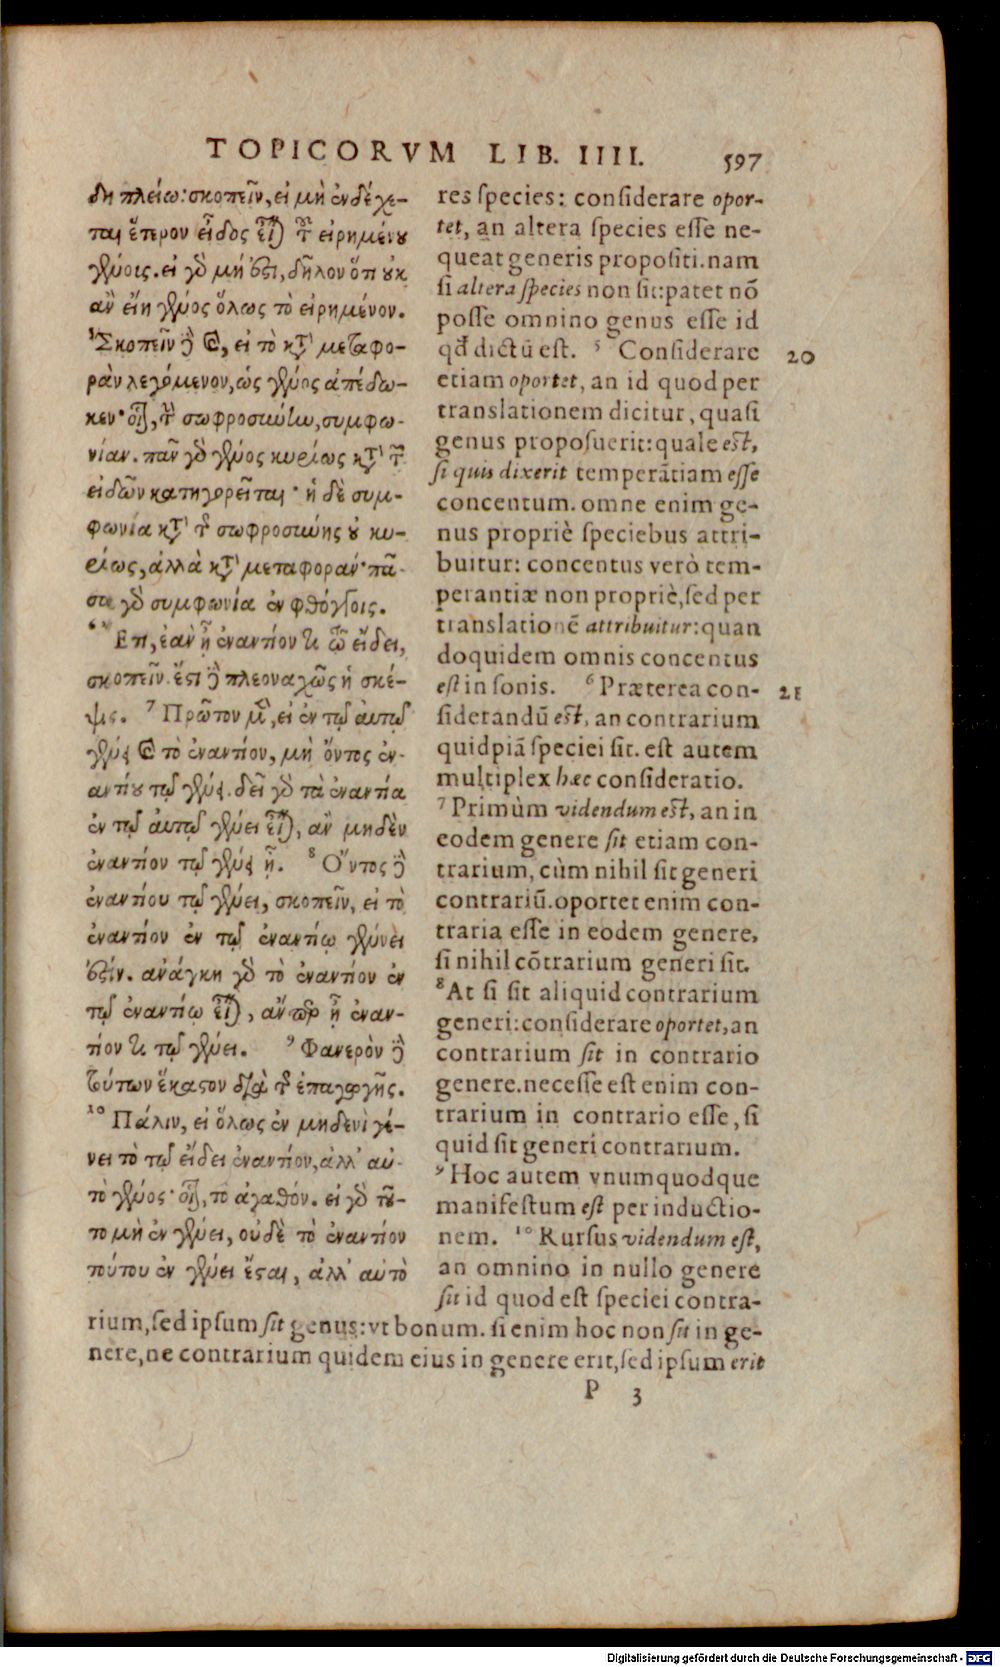 TOPICORVM LIB. IIII. 597
δη πλείω: σκοπεῖν, εἰ μὴ ἐνδέχε-
ται ἕτερον εἶδος εἶναι τοῦ εἰρημένου
γένοις. εἰ γὸ μή ἐστι, δῆλον ὅτι οὐκ
ἂν εἴη γένος ὅλως τὸ εἰρημένον.
⁵ Σκοπεῖν δὲ καὶ, εἰ τὸ κατὰ μεταφο-
ρὰν λεγόμενον, ὡς γένος ἀπέδω-
κεν· οἷον, τὴν σωφροσύνην, συμφω-
νίαν. πᾶν γὸ γένος κυρίως κατὰ τῶν
εἰδῶν κατηγορεῖται· ἡ δὲ συμ-
φωνία κατὰ τῆς σωφροσύνης οὐ κυ-
ρίως, ἀλλὰ κατὰ μεταφοράν· πᾶ-
σα γὸ συμφωνία ἐν φθόγγοις.
⁶ Ἔτι, ἐὰν ᾖ ἐναντίον τι τῷ εἴδει,
σκοπεῖν. ἔστι δὲ πλεοναχῶς ἡ σκέ-
ψις. ⁷ Πρῶτον μὲν, εἰ ἐν τῷ αὐτῷ
γένει καὶ τὸ ἐναντίον, μὴ ὄντος ἐν-
αντίου τῷ γένει. δεῖ γὸ τὰ ἐναντία
ἐν τῷ αὐτῷ γένει εἶναι, ἂν μηδὲν
ἐναντίον τῷ γένει ᾖ. ⁸ Ὄντος δὲ
ἐναντίου τῷ γένει, σκοπεῖν, εἰ τὸ
ἐναντίον ἐν τῷ ἐναντίῳ γένει
ἐστίν. ἀνάγκη γὸ τὸ ἐναντίον ἐν
τῷ ἐναντίῳ εἶναι, ἄνπερ ᾖ ἐναν-
τίον τι τῷ γένει. ⁹ Φανερὸν δὲ
τούτων ἕκαστον διὰ τῆς ἐπαγωγῆς.
¹⁰ Πάλιν, εἰ ὅλως ἐν μηδενὶ γέ-
νει τὸ τῷ εἴδει ἐναντίον, ἀλλ' αὐ-
τὸ γένος· οἷον, τὸ ἀγαθόν. εἰ γὸ τοῦ-
το μὴ ἐν γένει, οὐδὲ τὸ ἐναντίον
τούτου ἐν γένει ἔσται, ἀλλ' αὐτὸ
res species: considerare opor-
tet, an altera species esse ne-
queat generis propositi. nam
si altera species non sit: patet nō
posse omnino genus esse id
qđ dictū est. ⁵ Considerare 20
etiam oportet, an id quod per
translationem dicitur, quasi
genus proposuerit: quale est,
si quis dixerit temperātiam esse
concentum. omne enim ge-
nus propriè speciebus attri-
buitur: concentus verò tem-
perantiæ non propriè, sed per
translationē attribuitur: quan
doquidem omnis concentus
est in sonis. ⁶ Præterea con- 21
siderandū est, an contrarium
quidpiā speciei sit. est autem
multiplex hæc consideratio.
⁷ Primùm videndum est, an in
eodem genere sit etiam con-
trarium, cùm nihil sit generi
contrariū. oportet enim con-
traria esse in eodem genere,
si nihil cōtrarium generi sit.
⁸ At si sit aliquid contrarium
generi: considerare oportet, an
contrarium sit in contrario
genere. necesse est enim con-
trarium in contrario esse, si
quid sit generi contrarium.
⁹ Hoc autem vnumquodque
manifestum est per inductio-
nem. ¹⁰ Rursus videndum est,
an omnino in nullo genere
sit id quod est speciei contra-
rium, sed ipsum sit genus: vt bonum. si enim hoc non sit in ge-
nere, ne contrarium quidem eius in genere erit, sed ipsum erit
P 3
Digitalisierung gefördert durch die Deutsche Forschungsgemeinschaft - DFG